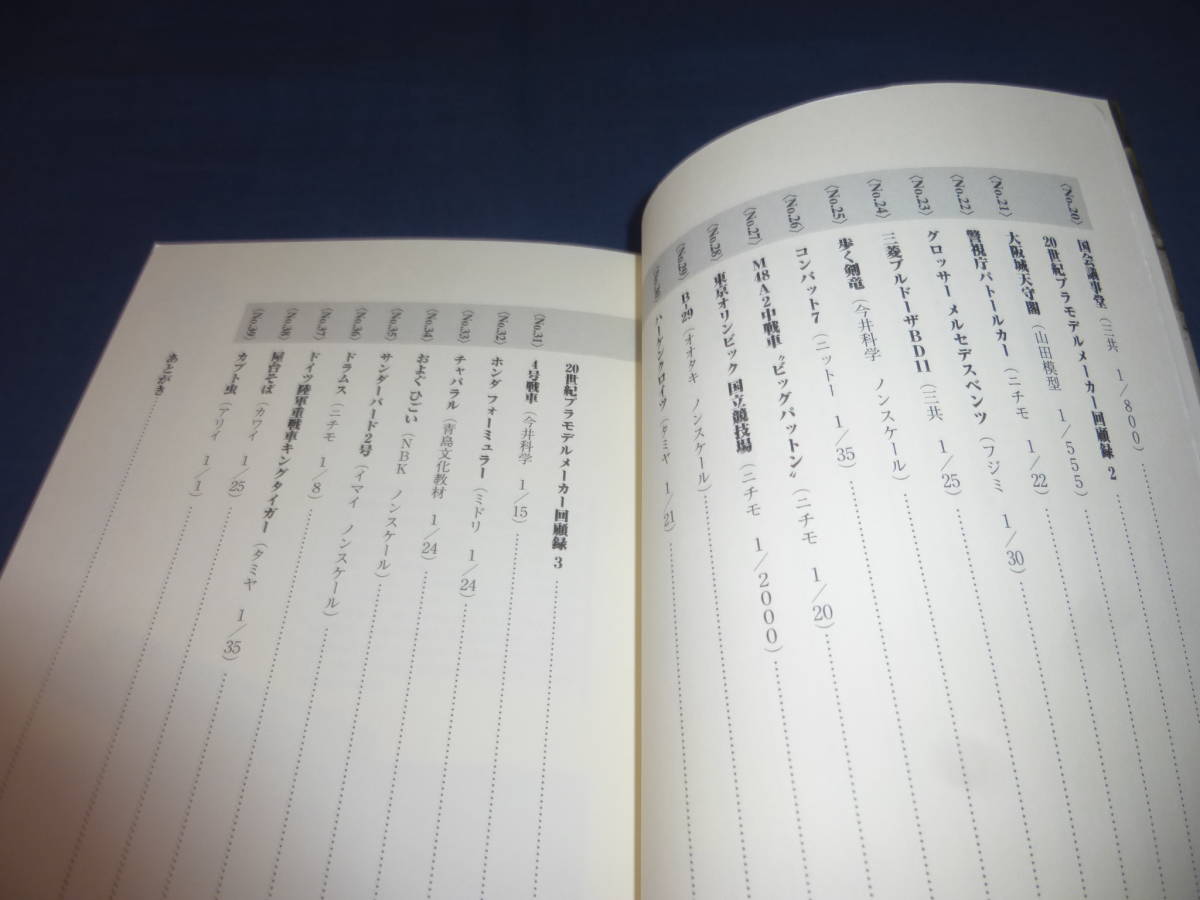 〈No.20〉国会議事堂（三共 1/800）
20世紀プラモデルメーカー回顧録 2
〈No.21〉大阪城天守閣（山田模型 1/555）
〈No.22〉警視庁パトールカー（ニチモ 1/22）
〈No.23〉グロッサーメルセデスベンツ（フジミ 1/30）
〈No.24〉三菱ブルドーザBD11（三共 1/25）
〈No.25〉歩く剣竜（今井科学 ノンスケール）
〈No.26〉コンバット7（ニットー 1/35）
〈No.27〉M48A2中戦車〝ビッグパットン〟（ニチモ 1/20）
〈No.28〉東京オリンピック 国立競技場（ニチモ 1/2000）
〈No.29〉B-29（オオタキ ノンスケール）
ハーケンクロイツ（タミヤ 1/21）
20世紀プラモデルメーカー回顧録 3
〈No.31〉4号戦車（今井科学 1/15）
〈No.32〉ホンダ フォーミュラー（ミドリ 1/24）
〈No.33〉チャパラル（青島文化教材 1/24）
〈No.34〉およぐひごい（NBK ノンスケール）
〈No.35〉サンダーバード2号（イマイ ノンスケール）
〈No.36〉ドラムス（ニチモ 1/8）
〈No.37〉ドイツ陸軍重戦車キングタイガー（タミヤ 1/35）
〈No.38〉屋台そば（カワイ 1/25）
〈No.39〉カブト虫（アリイ 1/1）
あとがき